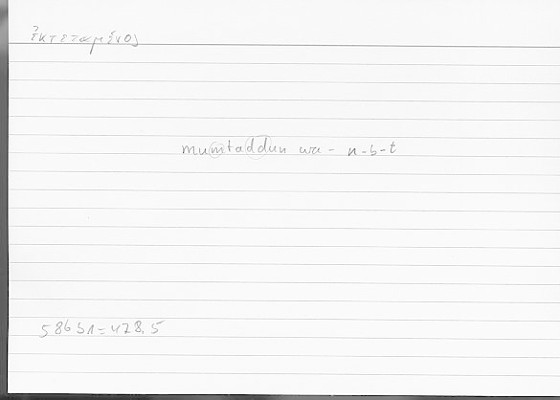 ἐκτεταμένος
mumtaddun wa- n-b-t
586 b1 = 478.5